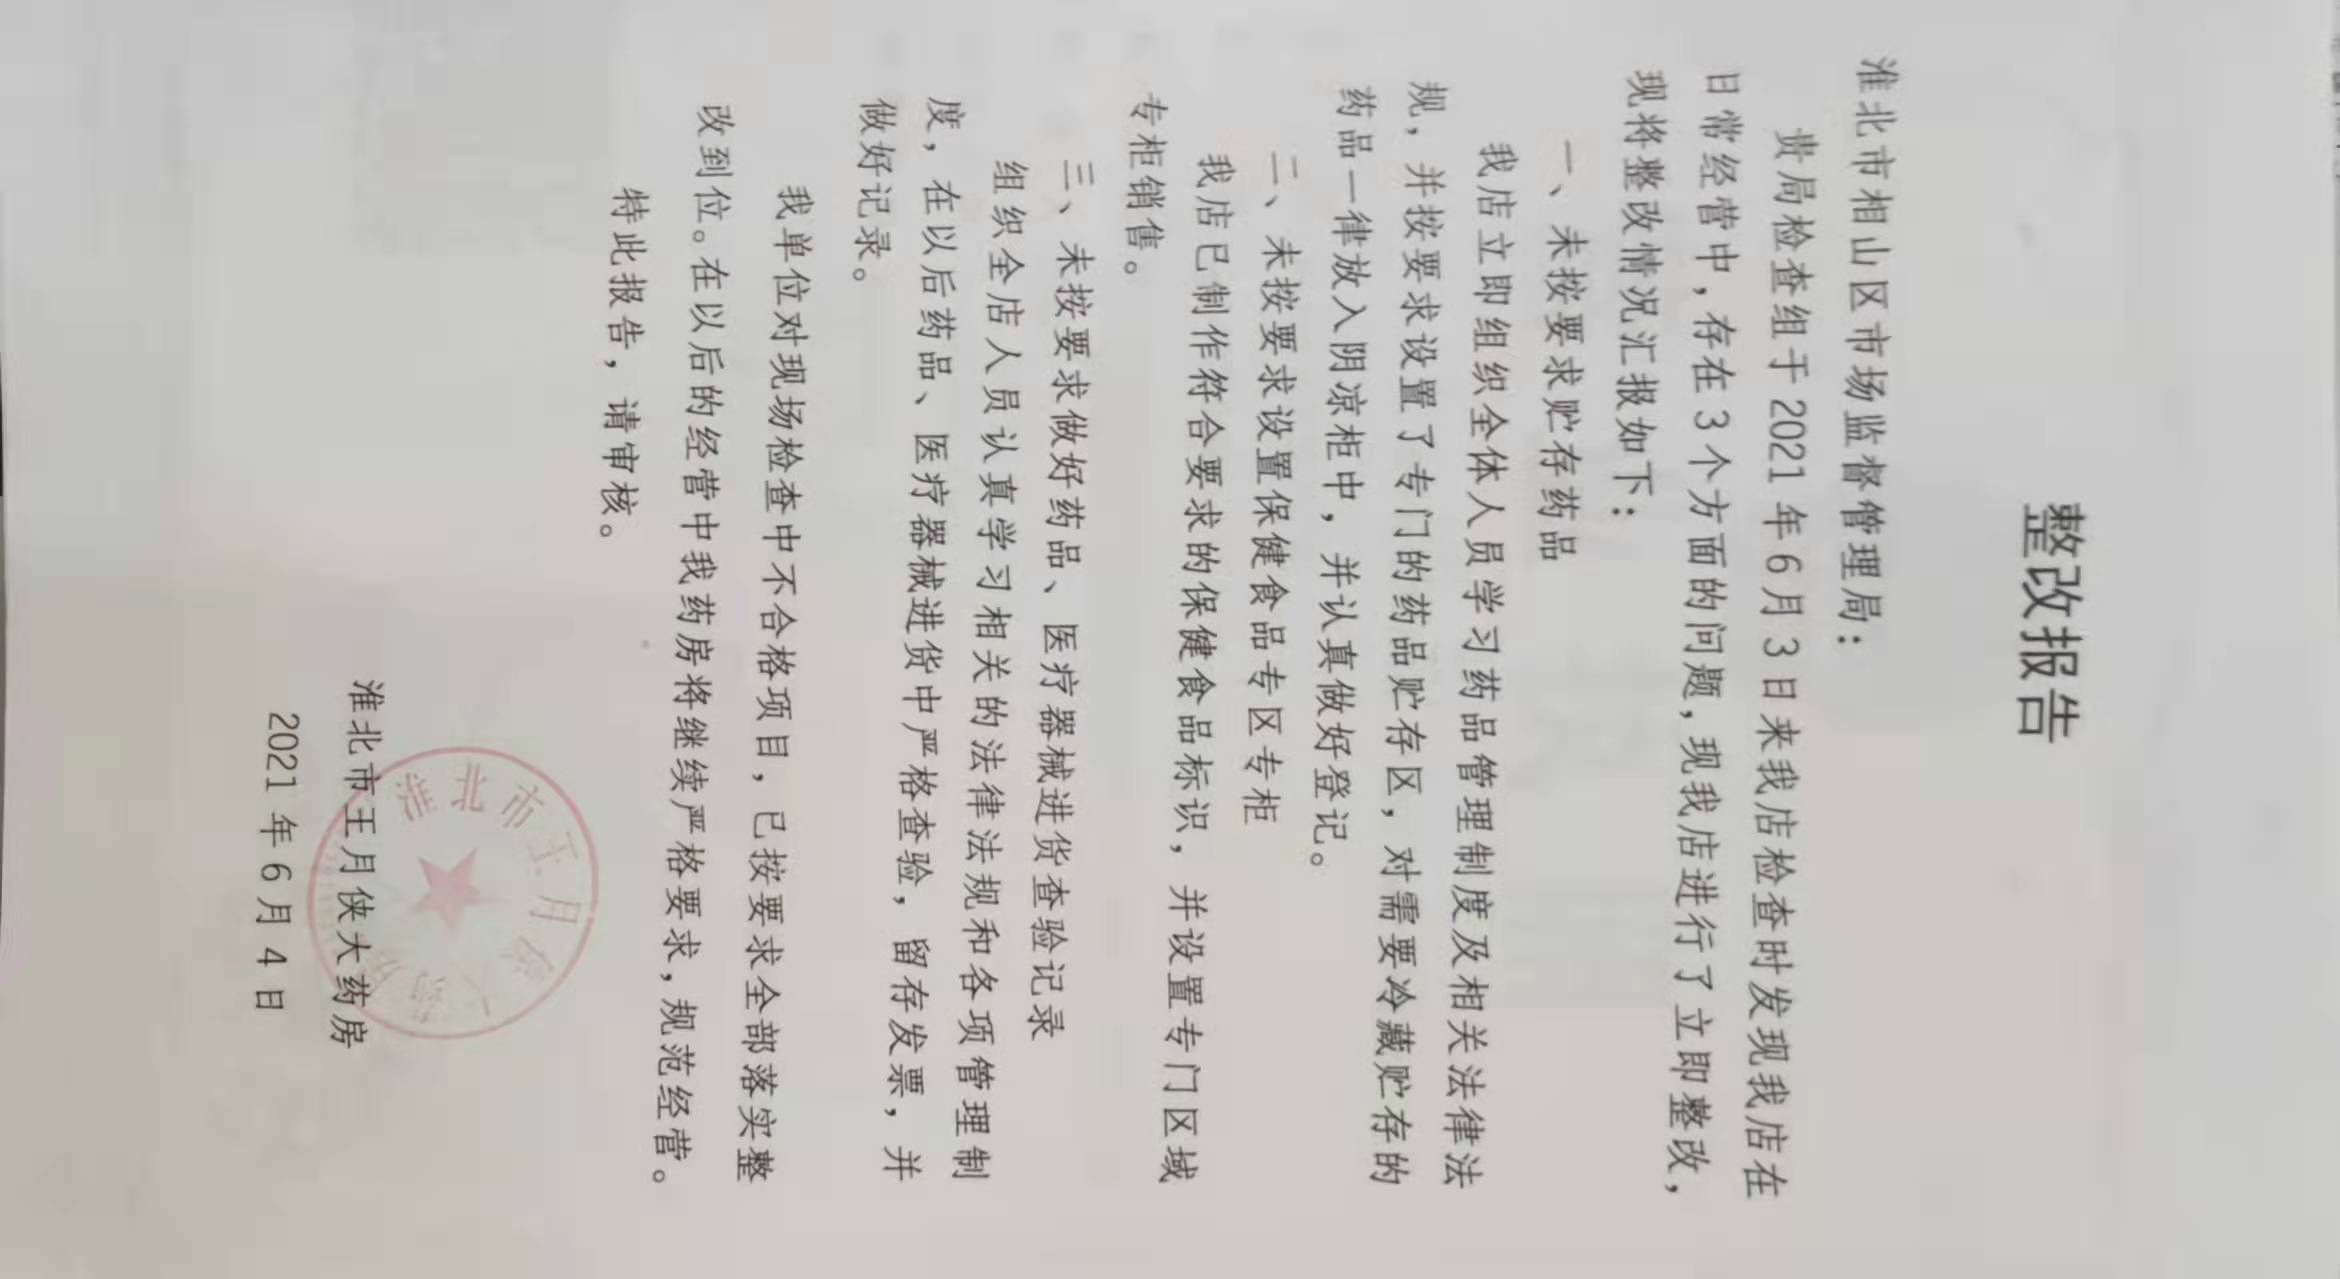 整改报告
淮北市相山区市场监督管理局：
贵局检查组于2021年6月3日来我店检查时发现我店在
日常经营中，存在3个方面的问题，现我店进行了立即整改，
现将整改情况汇报如下：
一、未按要求贮存药品
我店立即组织全体人员学习药品管理制度及相关法律法
规，并按要求设置了专门的药品贮存区，对需要冷藏贮存的
药品一律放入阴凉柜中，并认真做好登记。
二、未按要求设置保健食品专区专柜
我店已制作符合要求的保健食品标识，并设置专门区域
专柜销售。
三、未按要求做好药品、医疗器械进货查验记录
组织全店人员认真学习相关的法律法规和各项管理制
度，在以后药品、医疗器械进货中严格查验，留存发票，并
做好记录。
我单位对现场检查中不合格项目，已按要求全部落实整
改到位。在以后的经营中我药房将继续严格要求，规范经营。
特此报告，请审核。
淮北市王月侠大药房
2021年6月4日
淮北市王月侠大药房